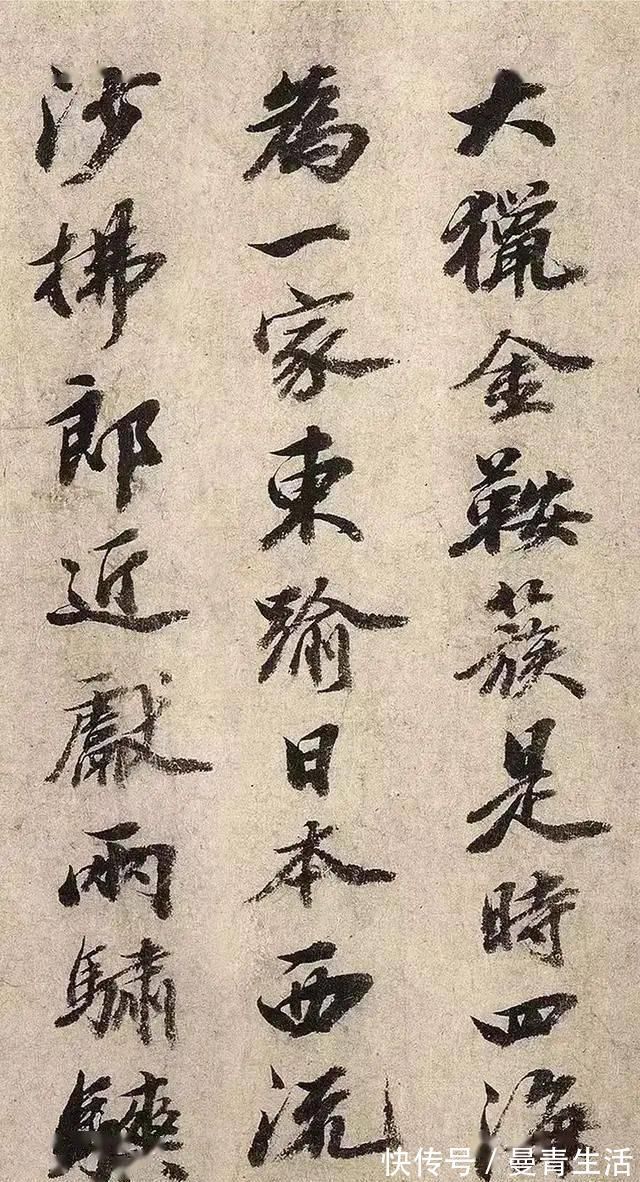 大獵金鞍簇是時四海
為一家東踰日本西流
沙拂郎近獻兩驌驦
快传号/曼青生活